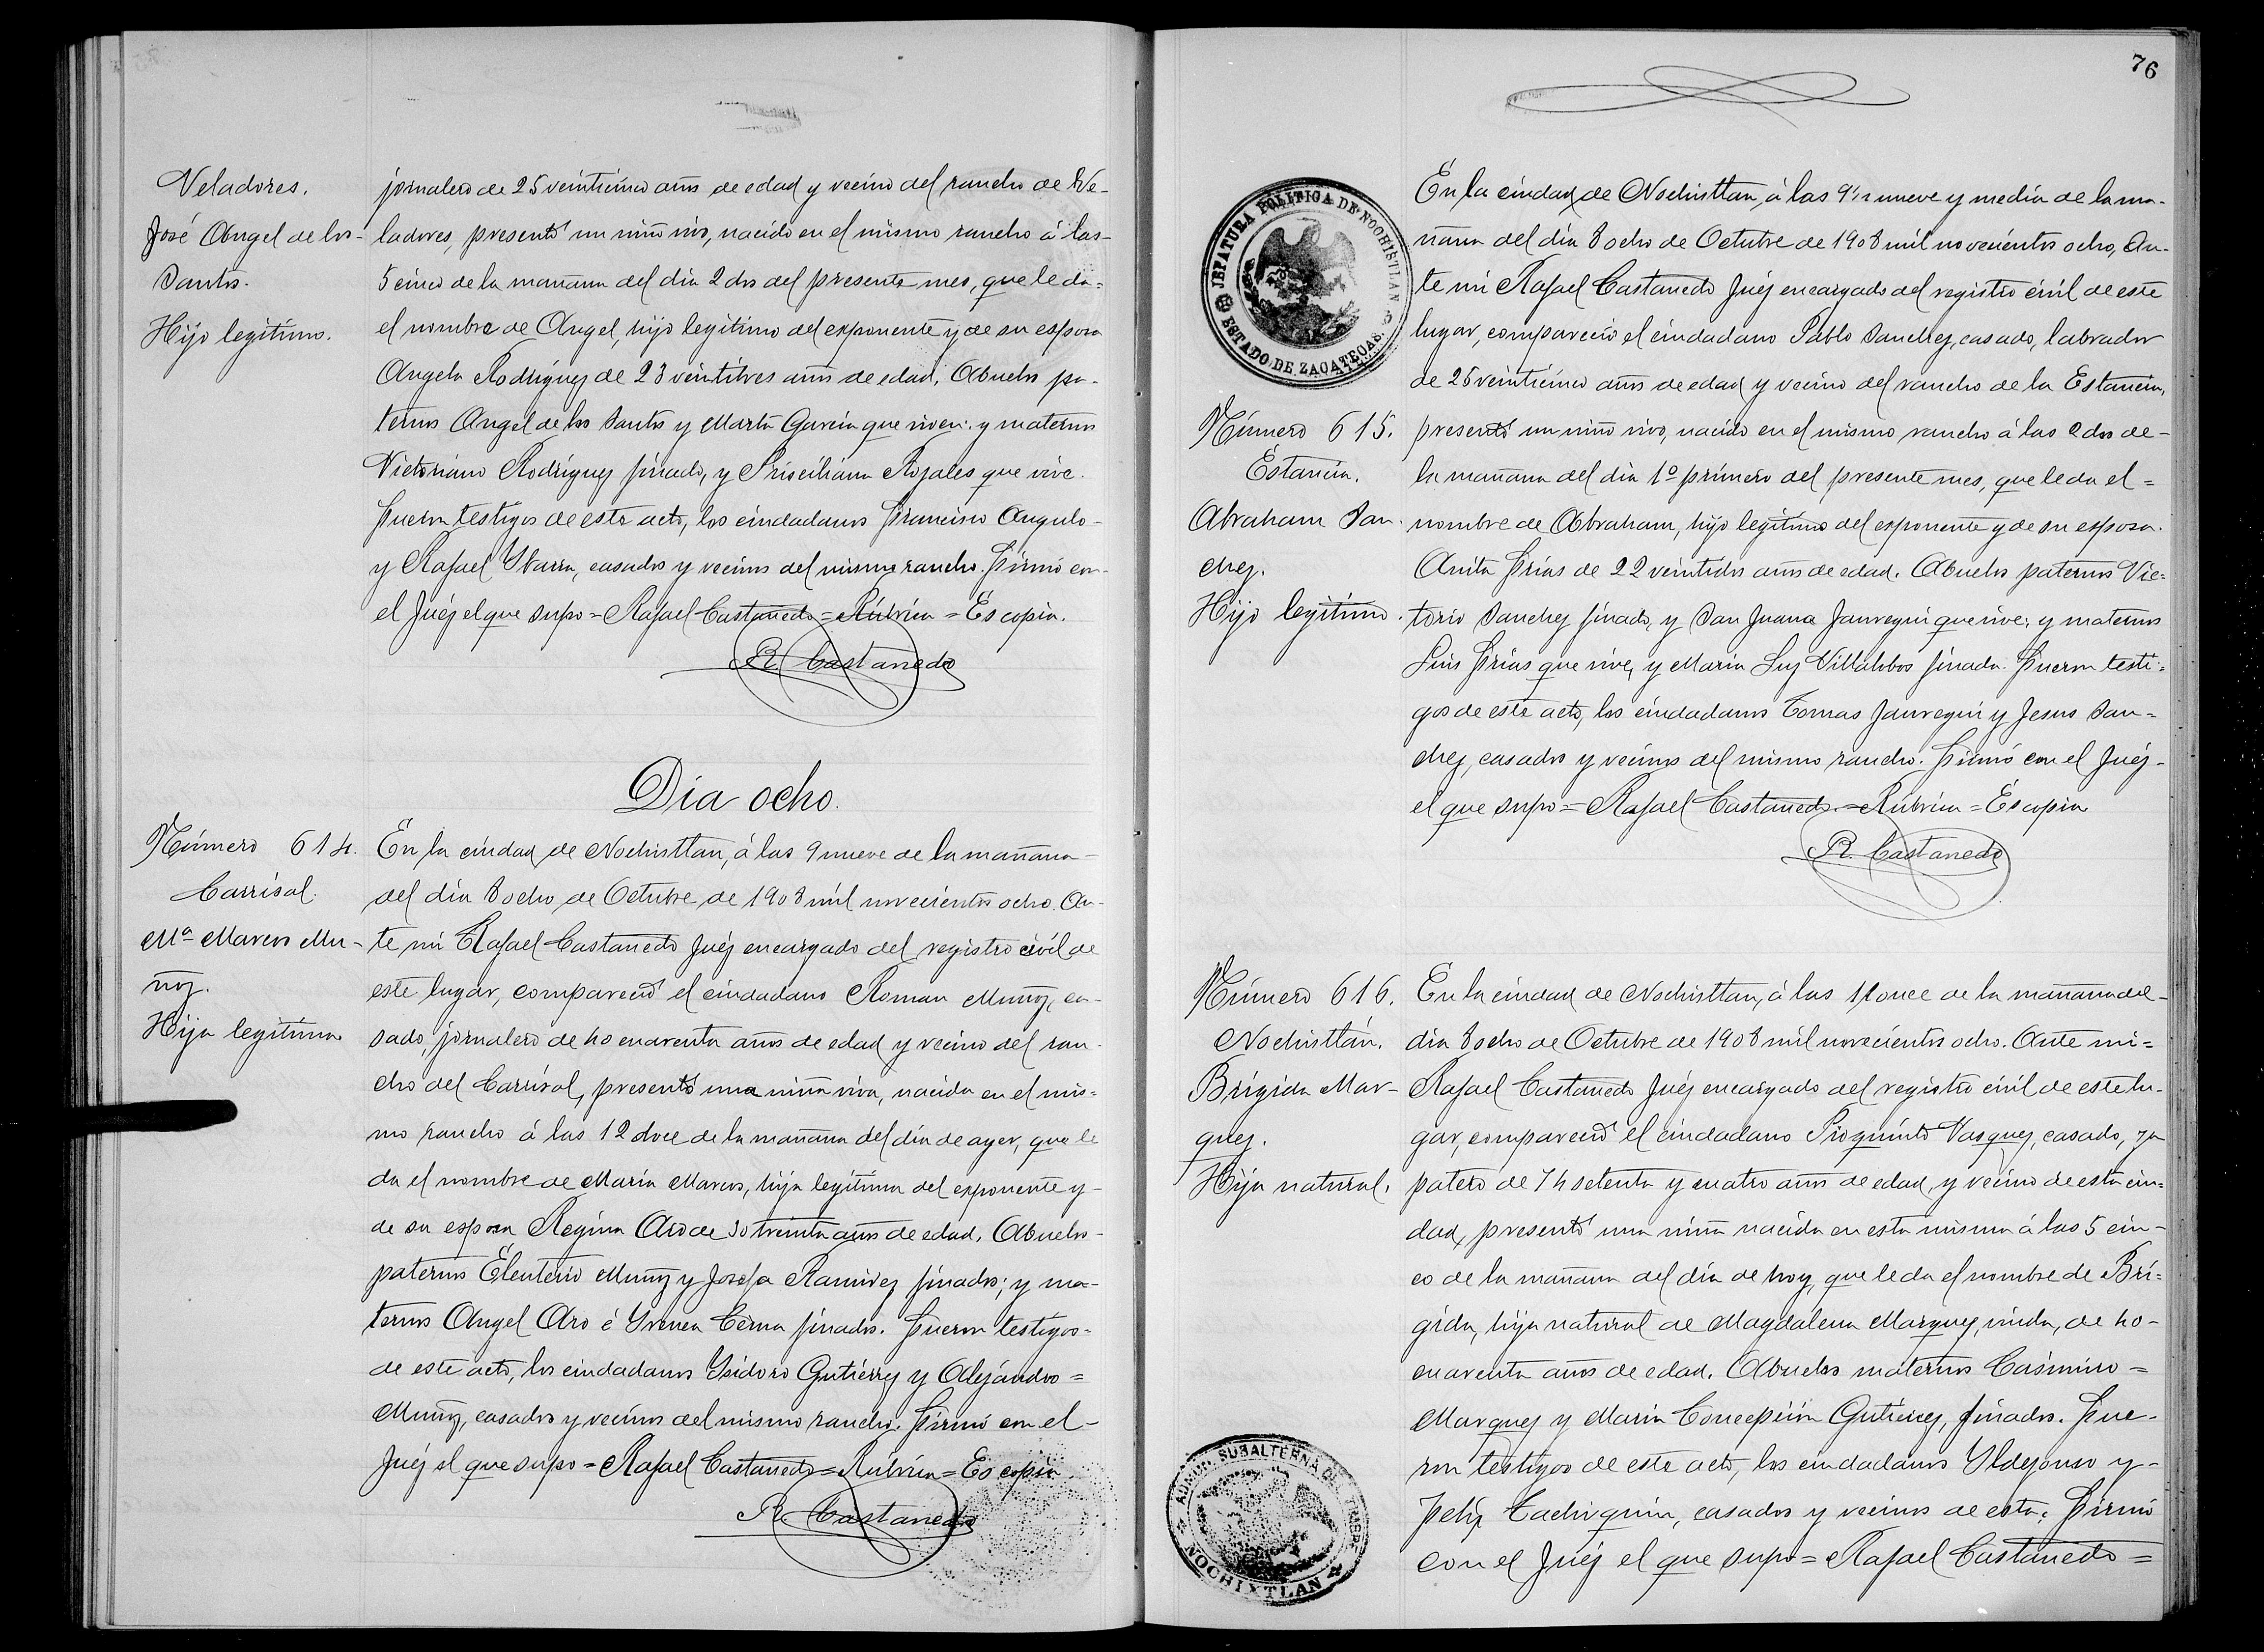 Veladores.
José Angel de los-
Santos.
Hijo legitimo.
jornalero de 25 veinticinco años de edad y vecino del rancho de Ve-
ladores, presentó un niño vivo, nacido en el mismo rancho á las-
5 cinco de la mañana del dia 2 dos del presente mes, que le da=
el nombre de Angel, hijo legitimo del exponente y de su esposa
Angela Rodriguez de 23 veintitres años de edad. Abuelos pa-
ternos Angel de los Santos y Marta Garcia que viven: y maternos
Victoriano Rodriguez finado, y Prisciliana Rosales que vive.
Fueron testigos de este acto, los ciudadanos Francisco Angulo-
y Rafael Ybarra, casados y vecinos del mismo rancho. Firmó con-
el Juéz el que supo = Rafael Castanedo = Rúbrica = Es copia.
R. Castanedo
Dia ocho.
Número 614.
Carrisal.
Mª Marcos Mu-
ñoz.
Hija legitima
En la ciudad de Nochistlan, á las 9 nueve de la mañana-
del dia 8 ocho de Octubre de 1908 mil novecientos ocho. An-
te mi Rafael Castanedo Juéz encargado del registro civil de
este lugar, compareció el ciudadano Roman Muñoz, ca-
sado, jornalero de 40 cuarenta años de edad y vecino del ran-
cho del Carrisal, presentó una niña viva, nacida en el mis=
mo rancho á las 12 doce de la mañana del dia de ayer, que le
da el nombre de Maria Marcos, hija legitima del exponente y-
de su esposa Regina Aro de 30 treinta años de edad. Abuelos-
paternos Eleuterio Muñoz y Josefa Ramirez finados; y ma-
ternos Angel Aro é Yrenea Cerna finados. Fueron testigos-
de este acto, los ciudadanos Ysidoro Gutiérrez y Alejandro=
Muñoz, casados y vecinos del mismo rancho. Firmó con el-
Juéz el que supo = Rafael Castanedo = Rúbrica = Es copia.
R. Castanedo
76
JEFATURA POLITICA DE NOCHISTLAN
ESTADO DE ZACATECAS.
Número 615.
Estancia.
Abraham San-
chez.
Hijo legitimo.
En la ciudad de Nochistlan, á las 9½ nueve y media de la ma-
ñana del dia 8 ocho de Octubre de 1908 mil novecientos ocho, An-
te mi Rafael Castanedo Juéz encargado del registro civil de este
lugar, compareció el ciudadano Pablo Sanchez, casado, labrador
de 25 veinticinco años de edad y vecino del rancho de la Estancia,
presentó un niño vivo, nacido en el mismo rancho á las 2 dos de-
la mañana del dia 1º primero del presente mes, que le da el=
nombre de Abraham, hijo legitimo del esponente y de su esposa.
Anita Frias de 22 veintidos años de edad. Abuelos paternos Vic=
torio Sanchez finado, y San Juana Jauregui que vive; y maternos
Luis Frias que vive, y Maria Luz Villalobos finada. Fueron testi=
gos de este acto, los ciudadanos Tomas Jauregui y Jesus San=
chez, casados y vecinos del mismo rancho. Firmó con el Juéz-
el que supo = Rafael Castanedo = Rúbrica = Es copia
R. Castanedo
Número 616.
Nochistlán.
Brigida Mar-
quez.
Hija natural.
En la ciudad de Nochistlan, á las 11 once de la mañana del-
dia 8 ocho de Octubre de 1908 mil novecientos ocho. Ante mi=
Rafael Castanedo Juéz encargado del registro civil de este lu-
gar, compareció el ciudadano Pioquinto Vasquez, casado, za
patero de 74 setenta y cuatro años de edad, y vecino de esta ciu=
dad, presentó una niña nacida en esta misma á las 5 cin-
co de la mañana del dia de hoy, que le da el nombre de Bri=
gida, hija natural de Magdalena Marquez, viuda, de 40-
cuarenta años de edad. Abuelos maternos Casimiro=
Marquez y Maria Concepción Gutierrez, finados. Fue-
ron testigos de este acto, los ciudadanos Yldefonso y-
Felix Cachirquin, casados y vecinos de esta. Firmó
con el Juéz el que supo = Rafael Castanedo =
ADMON. SUBALTERNA DEL TIMBRE
NOCHIXTLAN